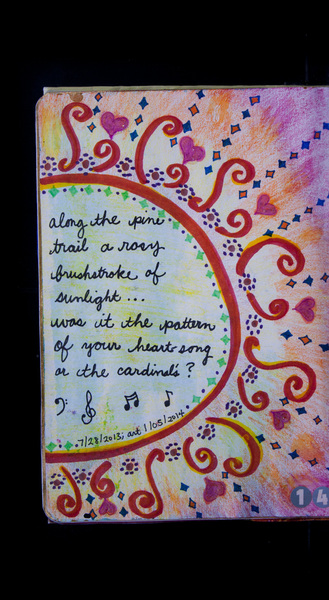 along the pine
trail a rosy
brushstroke of
sunlight...
was it the pattern
of your heart-song
or the cardinal's?
7/28/2013; art 1/05/2014
14